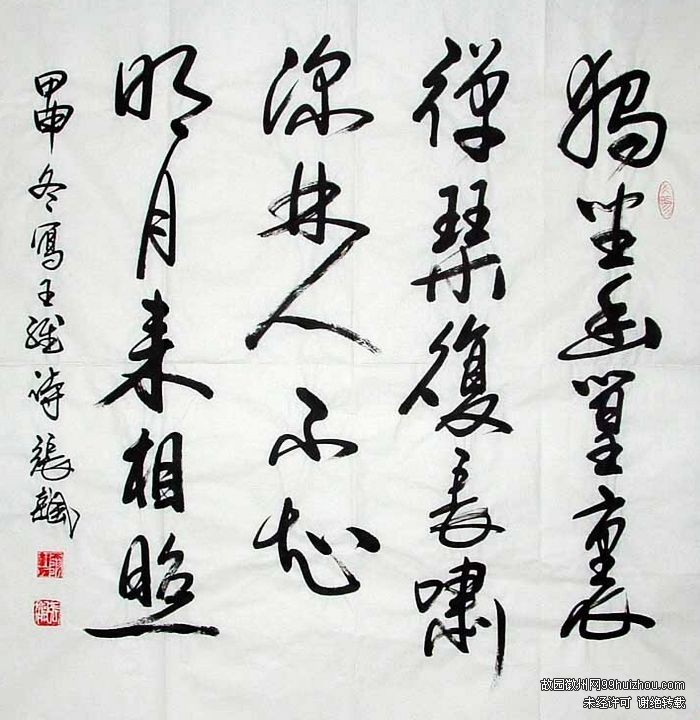 獨坐幽篁裏
彈琴復長嘯
深林人不知
明月来相照
甲申冬寫王維詩 張
故园徽州网99huizhou.com
未经许可 谢绝转载